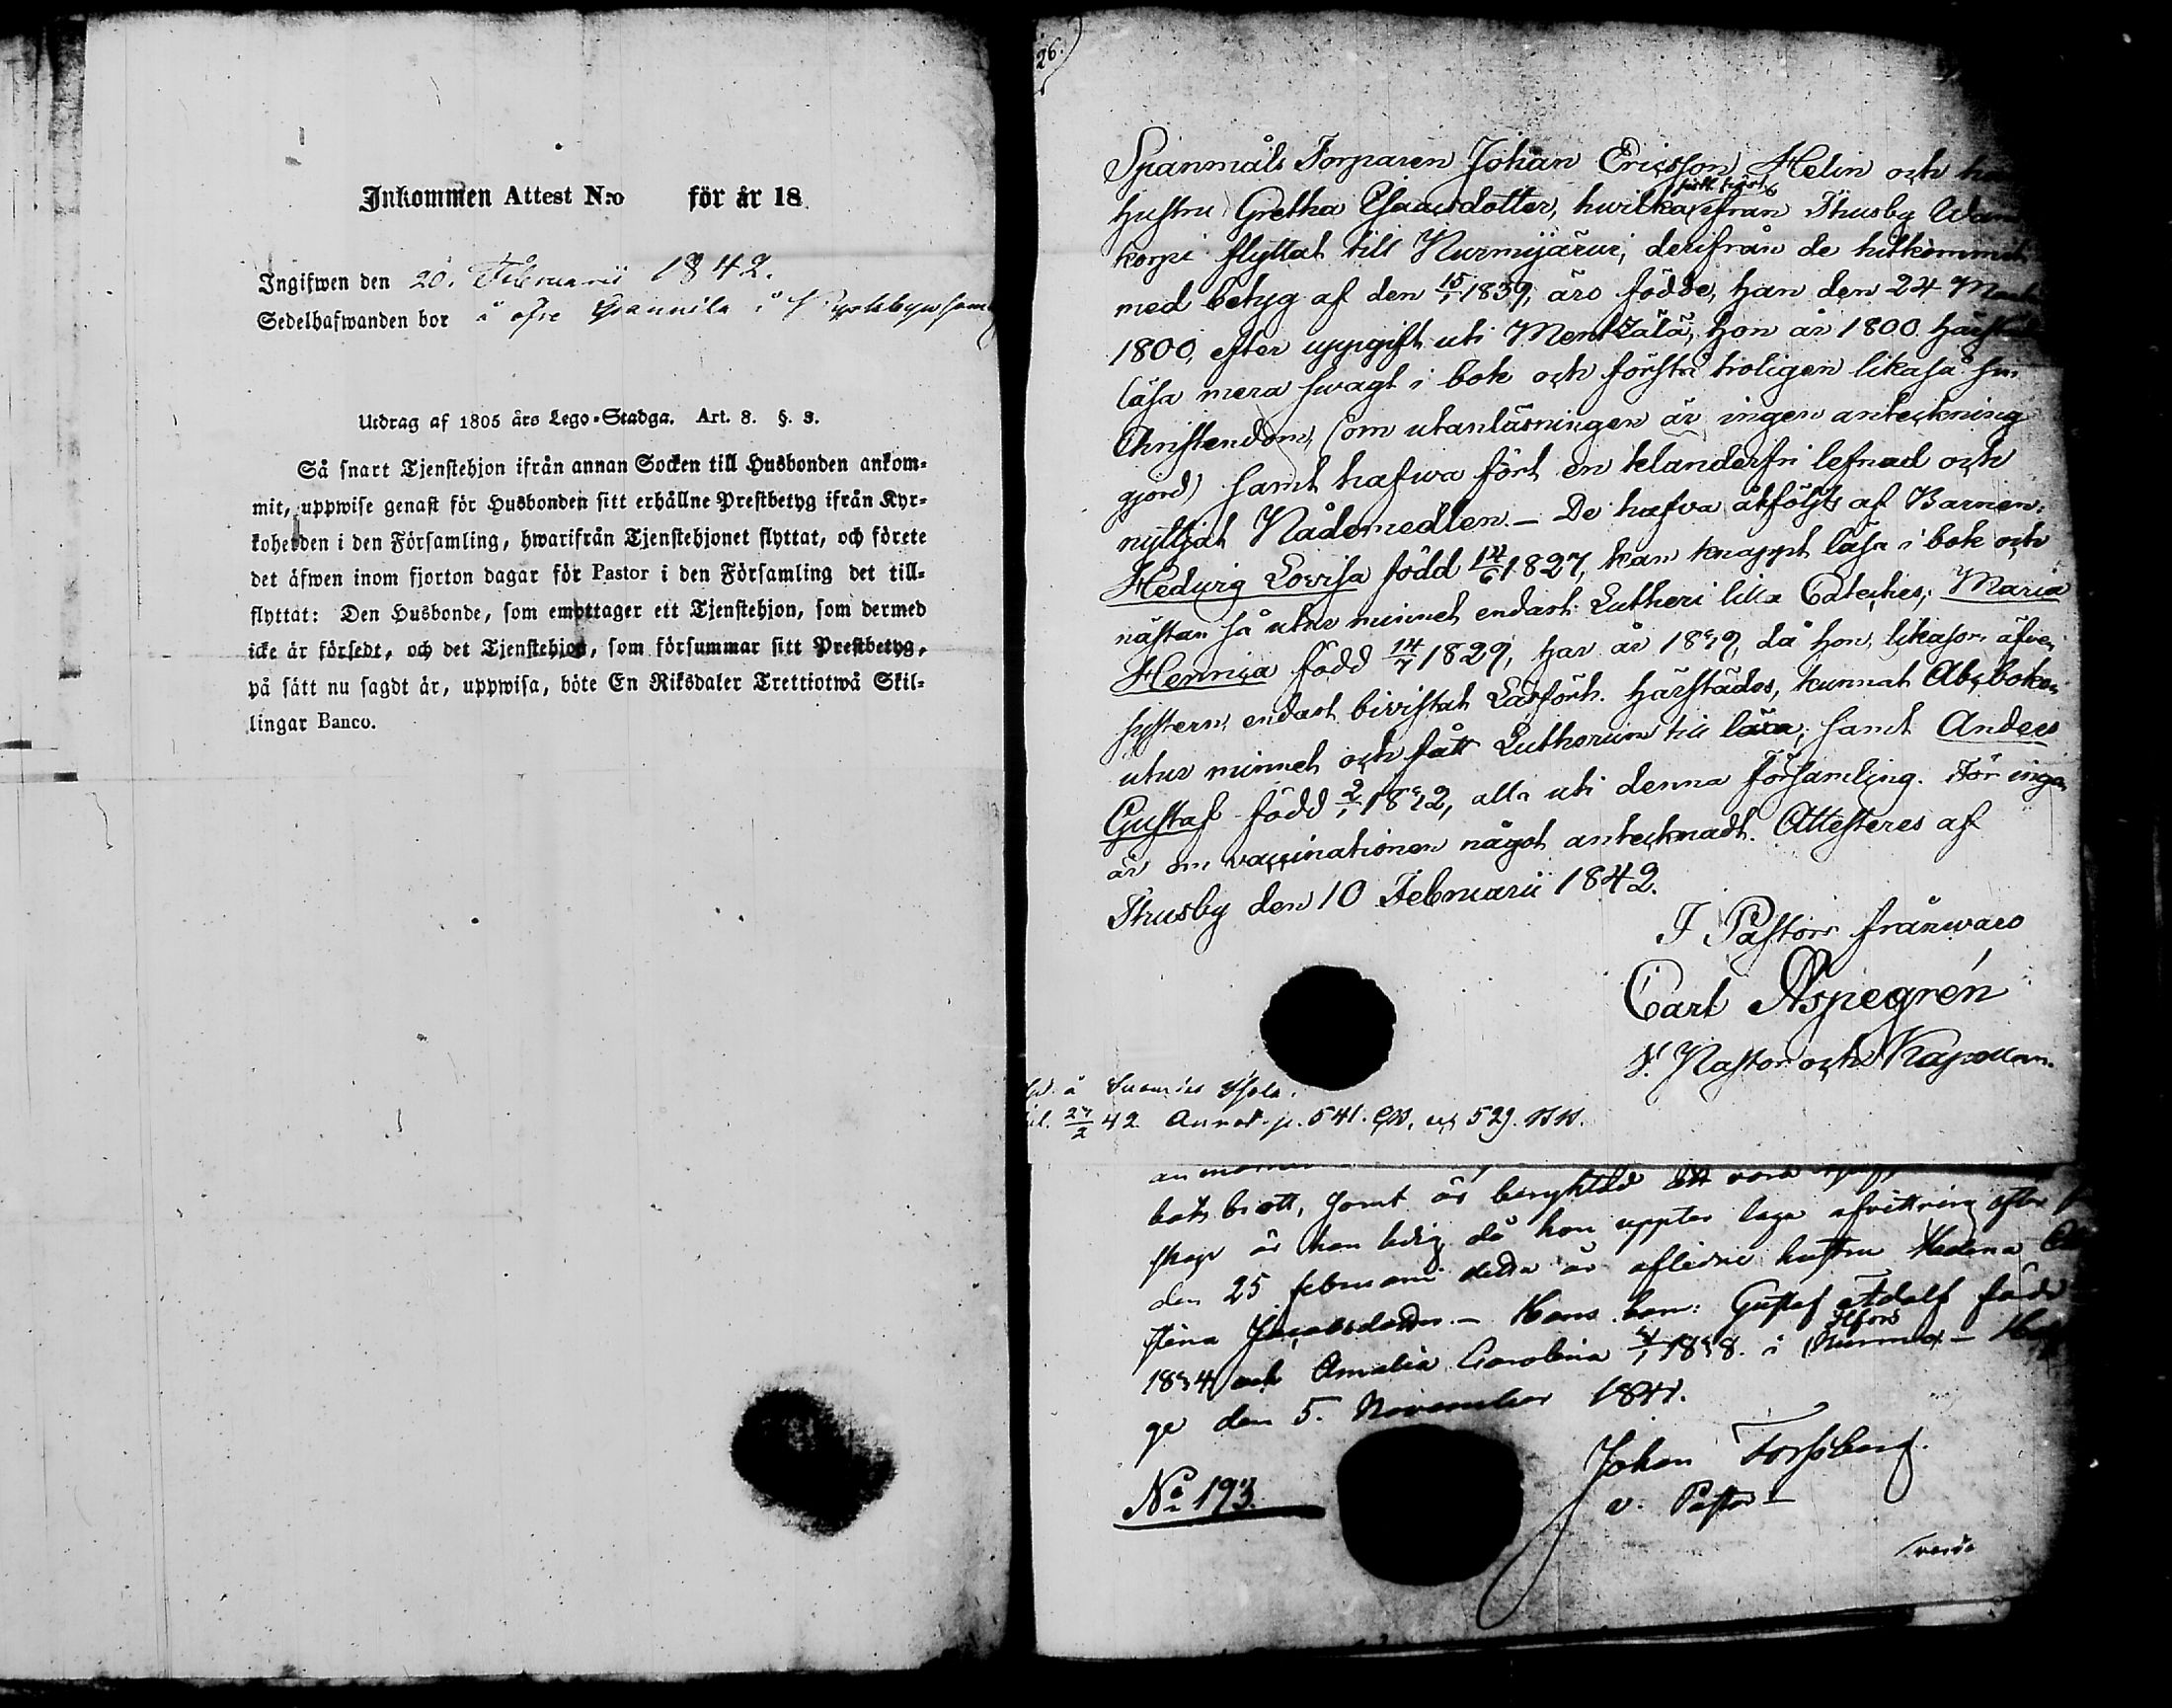 Inkommen Attest N:o för år 18
Ingifwen den 20. Februarii 1842.
Sedelhafwanden bor å öfre
Utdrag af 1805 års Lego-Stadga. Art. 8. §. 3.
Så snart Tjenstehjon ifrån annan Socken till Husbonden ankom-
mit, uppwise genast för Husbonden sitt erhållne Prestbetyg ifrån Kyr-
koherden i den Församling, hwarifrån Tjenstehjonet flyttat, och förete
det äfwen inom fjorton dagar för Pastor i den Församling det till-
flyttat: Den Husbonde, som emottager ett Tjenstehjon, som dermed
icke är försedt, och det Tjenstehjon, som försummar sitt Prestbetyg,
på sätt nu sagdt är, uppwisa, böte En Riksdaler Trettiotwå Skil-
lingar Banco.
26.
Spanmåls Torparen Johan Ericsson Helin och
hustru Gretha Esaacsdotter, hwilka ifrån Thusby
korpi flyttat till Nurmijärvi, derifrån de hitkommit
med betyg af den 15/1 1839, äro födde, han den 24
1800, efter uppgift uti Mentzälä, hon år 1800 här
läsa mera swagt i bok och förstå troligen likaså sin
Christendom, (om utanläsningen är ingen anteckning
gjord) samt hafwa fört en klanderfri lefnad och
nyttjat Nådemedlen. — De hafva åtföljts af Barnen:
Hedvig Lovisa född 14/6 1827, kan knappt läsa i bok och
nästan så utur minnet endast Lutheri lilla Cateches; Maria
Henrica född 14/7 1829, har år 1839, då hon, likasom äfven
systern, endast bivistat Läsförh. härstädes, kunnat Abcboken
utur minnet och fått Lutherum till läxa; samt Anders
Gustaf född 2/1 1832, alla uti denna församling. För ingen
är om vaccinationen något antecknadt. Attesteres af
Thusby den 10 Februarii 1842.
I Pastors frånwaro
Carl Aspegrén
V. Pastor och Kapellan.
27/2 42 Annot. p. 541. 529.
bots brott, samt är
är han ledig då han uppter laga afvittring efter
den 25 februarii detta år aflidne hustru
stina Jacobsdotter. — Hans barn: Gustaf Adolf född
1834 och Amalia Carolina 1838. i
ge den 5. November 1841.
Johan Forssberg.
v. Pastor
No 193.